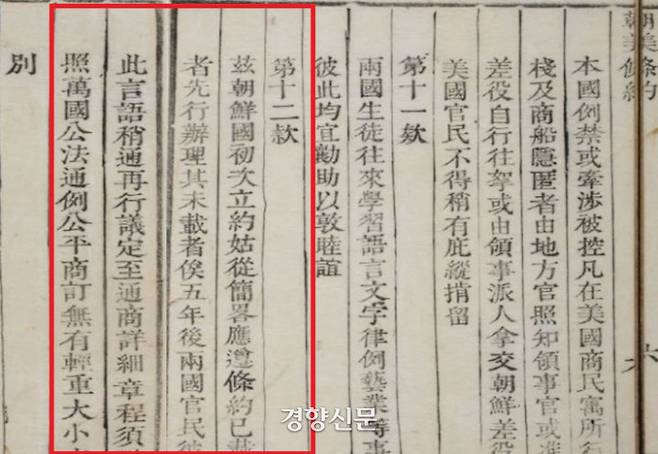 朝美條約
六
本國例禁或牽涉被控凡在美國商民寓所行
棧及商船隱匿者由地方官照知領事官或准
差役自行往拏或由領事派人拿交朝鮮差役
美國官民不得稍有庇縱掯留
第十一款
兩國生徒往來學習語言文字律例藝業等事
彼此均宜勷助以敦睦誼
第十二款
茲朝鮮國初次立約姑從簡畧應遵條約已載
者先行辦理其未載者俟五年後兩國官民彼
此言語稍通再行議定至通商詳細章程須
照萬國公法通例公平商訂無有輕重大小
別
경향신문